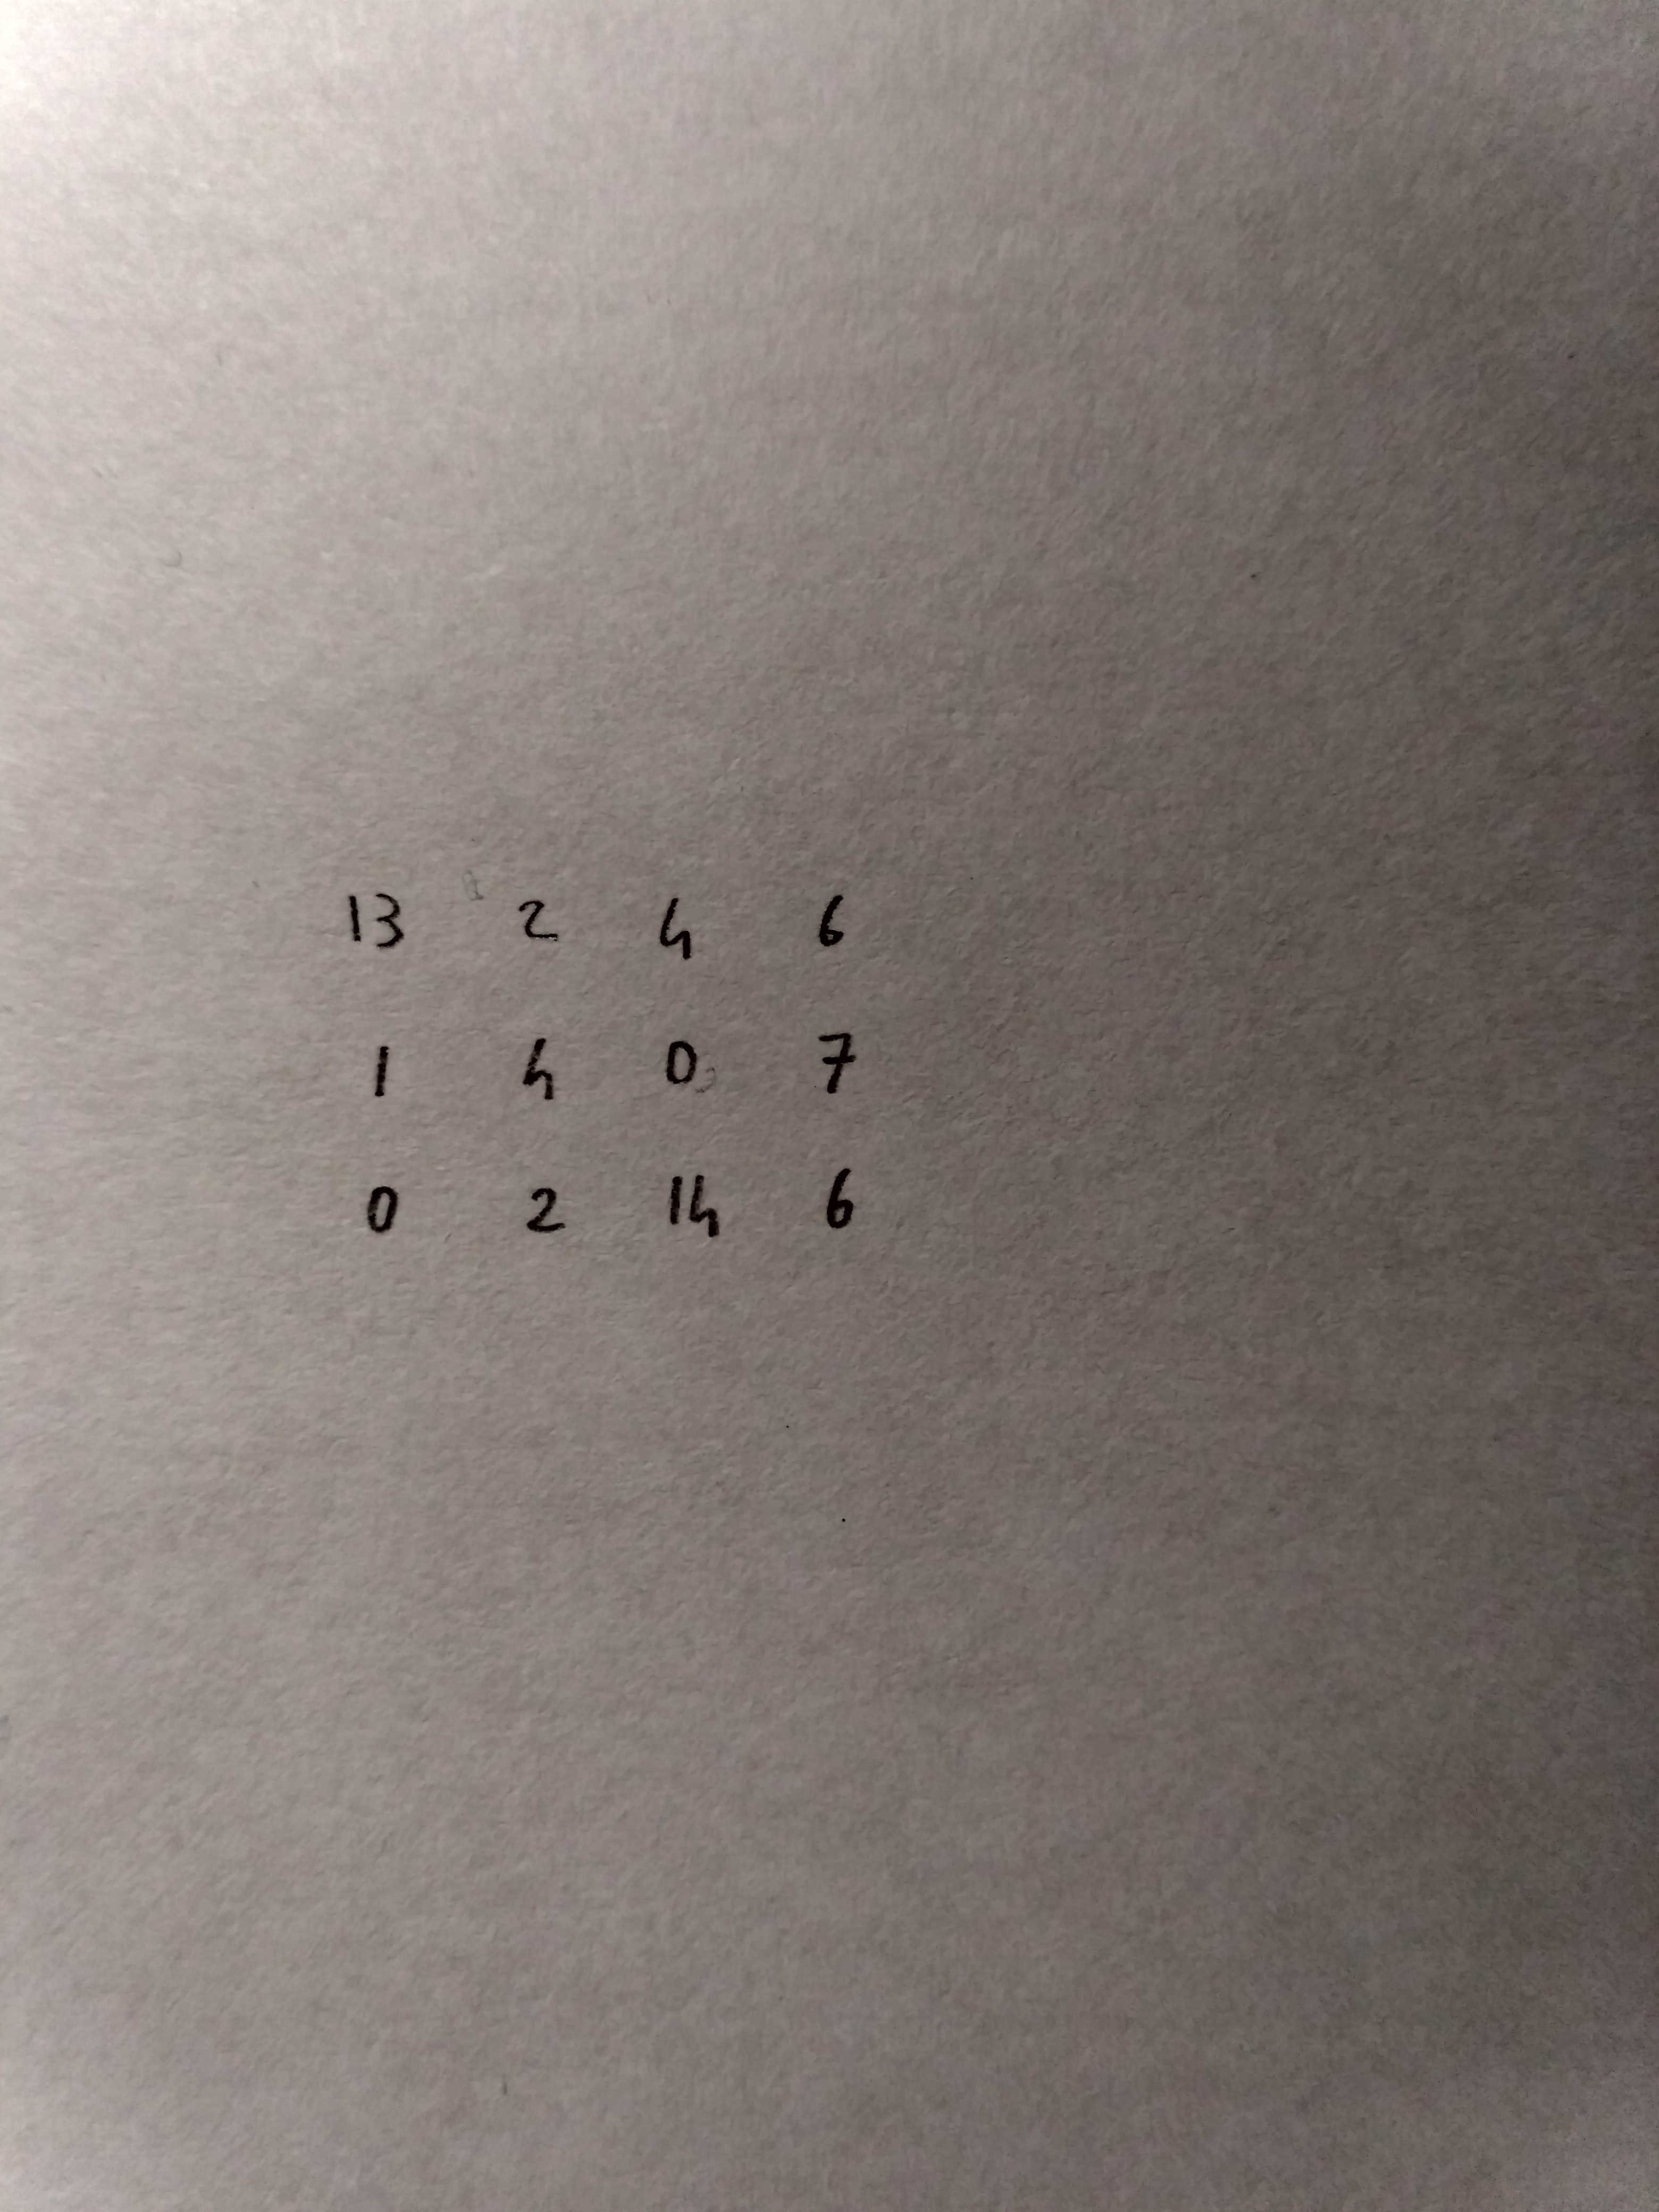 13 2 4 6
1 4 0 7
0 2 14 6